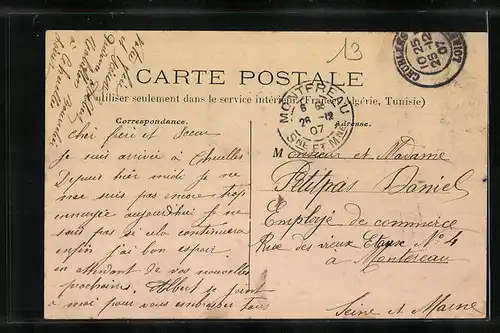 13
CARTE POSTALE
utiliser seulement dans le service intérieur (France, Algérie, Tunisie)
Correspondance.
Adresse.
MONTEREAU
26-12
07
SNE ET MNE
10 25
25-12
07
Cher frère et Soeur
Je suis arrivée à Chaulles
Depuis hier midi je ne
me suis pas encore trop
ennuyée aujourdhui je ne
sais pas si cela continuera
enfin j'ai bon espoir
en attendant de vos nouvelles
prochaines. Albert se joint
à moi pour vous embrasser tous
Monsieur et Madame
Petitpas Daniel
Employé de commerce
Rue des vieux N° 4
a Montereau
Seine et Marne